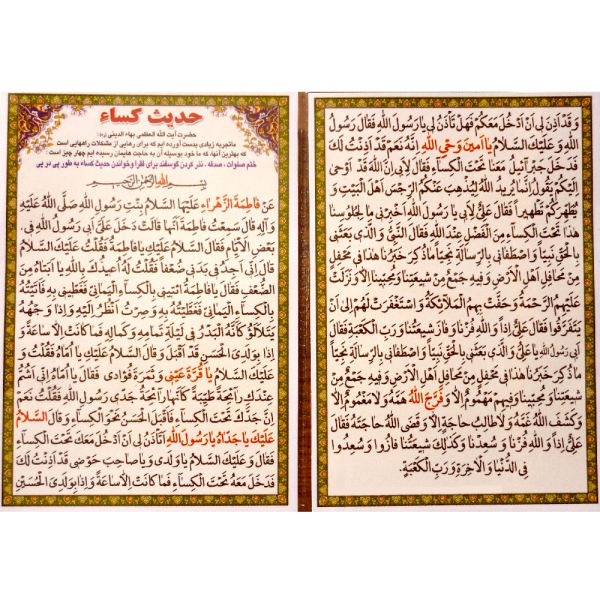 حدیث کساء
حضرت آیت الله العظمی بهاء الدینی (ره):
ماتجربه زیادی بدست آورده ایم که برای رهایی از مشکلات راههایی است
که بهترین آنها، که ما خود بوسیله آن به حاجت هایمان رسیده ایم چهار چیز است
ختم صلوات ، صدقه ، نذر کردن گوسفند برای فقرا وخواندن حدیث کساء به طور پی در پی
بسم الله الرحمن الرحیم
عَنْ فاطِمَةَ الزَّهْراءِ عَلَیْهَا السَّلامُ بِنْتِ رَسُولِ اللهِ صَلَّی اللهُ عَلَیْهِ
وَآلِهِ قالَ سَمِعْتُ فاطِمَةَ اَنَّها قالَتْ دَخَلَ عَلَیَّ اَبی رَسُولُ اللهِ فی
بَعْضِ الْاَیّامِ فَقالَ السَّلامُ عَلَیْكِ یا فاطِمَةُ فَقُلْتُ عَلَیْكَ السَّلامُ
قالَ اِنّی اَجِدُ فی بَدَنی ضُعْفاً فَقُلْتُ لَهُ اُعیذُكَ بِاللهِ یا اَبَتاهُ مِنَ
الضُّعْفِ فَقالَ یا فاطِمَةُ ائْتینی بِالْکِساءِ الْیَمانی فَغَطّینی بِهِ فَاَتَیْتُهُ
بِالْکِساءِ الْیَمانی فَغَطَّیْتُهُ بِهِ وَصِرْتُ اَنْظُرُ اِلَیْهِ وَاِذا وَجْهُهُ
یَتَلَأْلَؤُ کَاَنَّهُ الْبَدْرُ فی لَیْلَةِ تَمامِهِ وَکَمالِهِ فَما کانَتْ اِلّا ساعَةً وَ
اِذا بِوَلَدِیَ الْحَسَنِ قَدْ اَقْبَلَ وَقالَ السَّلامُ عَلَیْكِ یا اُمّاهُ فَقُلْتُ وَ
عَلَیْكَ السَّلامُ یا قُرَّةَ عَیْنی وَ ثَمَرَةَ فُؤادی . فَقالَ یا اُمّاهُ اِنّی اَشَمُّ
عِنْدَكِ رائِحَةً طَیِّبَةً کَاَنَّها رائِحَةُ جَدّی رَسُولِ اللهِ فَقُلْتُ نَعَمْ
اِنَّ جَدَّكَ تَحْتَ الْکِساءِ فَاَقْبَلَ الْحَسَنُ نَحْوَ الْکِساءِ وَ قالَ السَّلامُ
عَلَیْكَ یا جَدّاهُ یا رَسُولَ اللهِ اَتَأْذَنُ لی اَنْ اَدْخُلَ مَعَكَ تَحْتَ الْکِساءِ
فَقالَ وَ عَلَیْكَ السَّلامُ یا وَلَدی وَ یا صاحِبَ حَوْضی قَدْ اَذِنْتُ لَكَ
فَدَخَلَ مَعَهُ تَحْتَ الْکِساءِ فَما کانَتْ اِلّا ساعَةً وَ اِذا بِوَلَدِیَ الْحُسَیْنِ
وَ قَدْ اَذِنَ لی اَنْ اَدْخُلَ مَعَکُمْ فَهَلْ تَأْذَنُ لی یا رَسُولَ اللهِ فَقالَ رَسُولُ
اللهِ وَ عَلَیْكَ السَّلامُ یا اَمینَ وَحْیِ اللهِ اِنَّهُ نَعَمْ قَدْ اَذِنْتُ لَكَ
فَدَخَلَ جَبْرآئیلُ مَعَنا تَحْتَ الْکِساءِ فَقالَ لِاَبی اِنَّ اللهَ قَدْ اَوْحی
اِلَیْکُمْ یَقُولُ اِنَّما یُریدُ اللهُ لِیُذْهِبَ عَنْکُمُ الرِّجْسَ اَهْلَ الْبَیْتِ وَ
یُطَهِّرَکُمْ تَطْهیراً فَقالَ عَلِیٌّ لِاَبی یا رَسُولَ اللهِ اَخْبِرْنی ما لِجُلُوسِنا
هذا تَحْتَ الْکِساءِ مِنَ الْفَضْلِ عِنْدَ اللهِ فَقالَ النَّبِیُّ وَ الَّذی بَعَثَنی
بِالْحَقِّ نَبِیّاً وَ اصْطَفانی بِالرِّسالَةِ نَجِیّاً ما ذُکِرَ خَبَرُنا هذا فی مَحْفِلٍ
مِنْ مَحافِلِ اَهْلِ الْاَرْضِ وَ فیهِ جَمْعٌ مِنْ شیعَتِنا وَ مُحِبّینا اِلّا وَ نَزَلَتْ
عَلَیْهِمُ الرَّحْمَةُ وَ حَفَّتْ بِهِمُ الْمَلآئِکَةُ وَ اسْتَغْفَرَتْ لَهُمْ اِلی اَنْ
یَتَفَرَّقُوا فَقالَ عَلِیٌّ اِذاً وَ اللهِ فُزْنا وَ فازَ شیعَتُنا وَ رَبِّ الْکَعْبَةِ فَقالَ
اَبی رَسُولُ اللهِ یا عَلِیُّ وَ الَّذی بَعَثَنی بِالْحَقِّ نَبِیّاً وَ اصْطَفانی بِالرِّسالَةِ نَجِیّاً
ما ذُکِرَ خَبَرُنا هذا فی مَحْفِلٍ مِنْ مَحافِلِ اَهْلِ الْاَرْضِ وَ فیهِ جَمْعٌ مِنْ
شیعَتِنا وَ مُحِبّینا وَ فیهِمْ مَهْمُومٌ اِلّا وَ فَرَّجَ اللهُ هَمَّهُ وَ لا مَغْمُومٌ اِلّا
وَ کَشَفَ اللهُ غَمَّهُ وَ لا طالِبُ حاجَةٍ اِلّا وَ قَضَی اللهُ حاجَتَهُ فَقالَ
عَلِیٌّ اِذاً وَ اللهِ فُزْنا وَ سُعِدْنا وَ کَذلِكَ شیعَتُنا فازُوا وَ سُعِدُوا
فِی الدُّنْیا وَ الْاخِرَةِ وَ رَبِّ الْکَعْبَةِ.